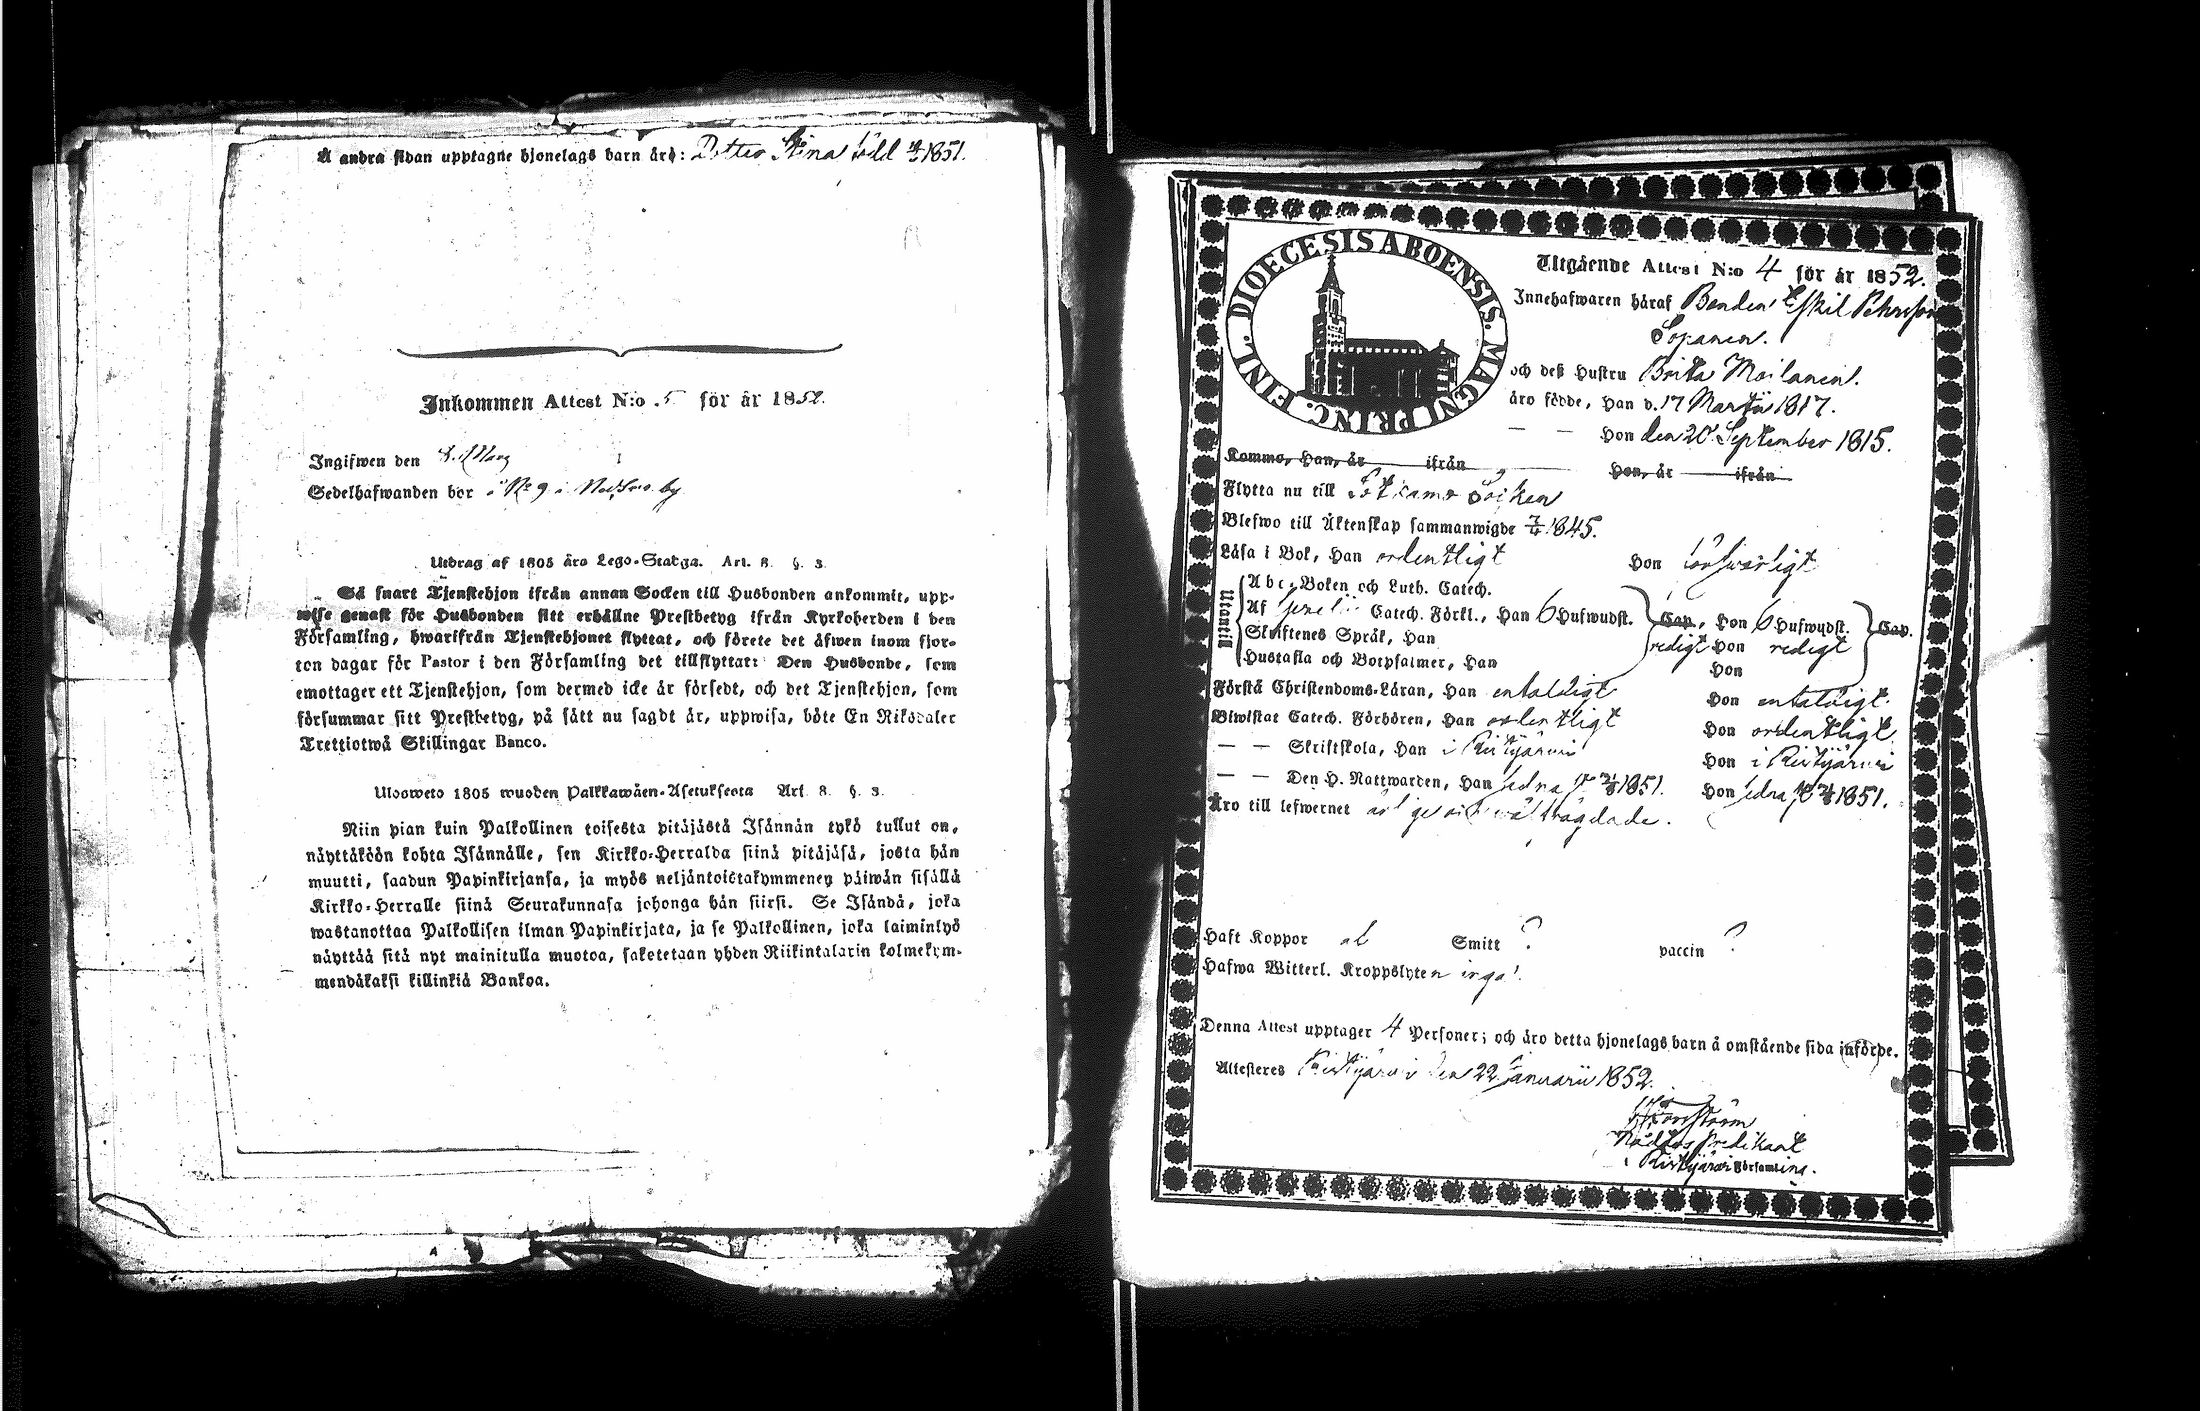 Å andra sidan upptagne hjonelags barn äro: Dotter Stina född 1851.
Inkommen Attest N:o 5 för år 1852.
Ingifwen den Mars
Sedelhafwanden bor i No 9 i by
Utdrag af 1805 års Lego-Stadga. Art. 8. §. 3.
Så snart Tjenstehjon ifrån annan Socken till Husbonden ankommit, upp-
wise genast för Husbonden sitt erhållne Prestbetyg ifrån Kyrkoherden i den
Församling, hwarifrån Tjenstehjonet flyttat, och förete det äfwen inom fjor-
ton dagar för Pastor i den Församling det tillflyttat: Den Husbonde, som
emottager ett Tjenstehjon, som dermed icke är försedt, och det Tjenstehjon, som
försummar sitt Prestbetyg, på sätt nu sagdt är, uppwisa, böte En Riksdaler
Trettiotwå Skillingar Banco.
Ulosweto 1805 wuoden Palkkawäen-Asetuksesta Art. 8. §. 3.
Niin pian kuin Palkollinen toisesta pitäjästä Isännän tykö tullut on,
näyttäköön kohta Isännälle, sen Kirkko-Herralda siinä pitäjäsä, josta hän
muutti, saadun Papinkirjansa, ja myös neljäntoistakymmenen päiwän sisällä
Kirkko-Herralle siinä Seurakunnasa johonga hän siirsi. Se Isändä, joka
wastanottaa Palkollisen ilman Papinkirjata, ja se Palkollinen, joka laiminlyö
näyttää sitä nyt mainitulla muotoa, saketetaan yhden Riikintalarin kolmekym-
mendäkaksi killinkiä Bankoa.
DIOECESIS ABOENSIS. MAGNI PRINC. FINL.
Utgående Attest N:o 4 för år 1852.
Innehafwaren häraf Bonden Eskil Pehrsson
Sopanen.
och deß Hustru Brita Moilanen.
äro födde, Han d. 17 Martii 1817.
— — Hon den 20 September 1815.
Kommo, Han, år ifrån Hon, år ifrån
Flytta nu till Sotkamo Soken
Blefwo till Äktenskap sammanwigde 1845.
Läsa i Bok, Han ordentligt Hon förswarligt
Utantill
Abc-Boken och Luth. Catech.
Af Catech. Förkl., Han 6 Hufwudst. Cap., Hon 6 Hufwudst. Cap.
Skriftenes Språk, Han redigt Hon redigt
Hustafla och Botpsalmer, Han Hon
Förstå Christendoms-Läran, Han enfaldigt Hon enfaldigt.
Biwistat Catech. Förhören, Han ordentligt Hon ordentligt
— — Skriftskola, Han i Ristijärvi Hon i Ristijärvi
— — Den H. Nattwarden, Han sedna 1851. Hon sedna 1851.
Äro till lefwernet wälfrägdade.
Haft Koppor Smitt ? vaccin ?
Hafwa Witterl. Kroppslyten inga.
Denna Attest upptager 4 Personer; och äro detta hjonelags barn å omstående sida införde.
Attesteres Ristijärvi den 22 Januarii 1852.
Predikant
i Ristijärvi Församling.